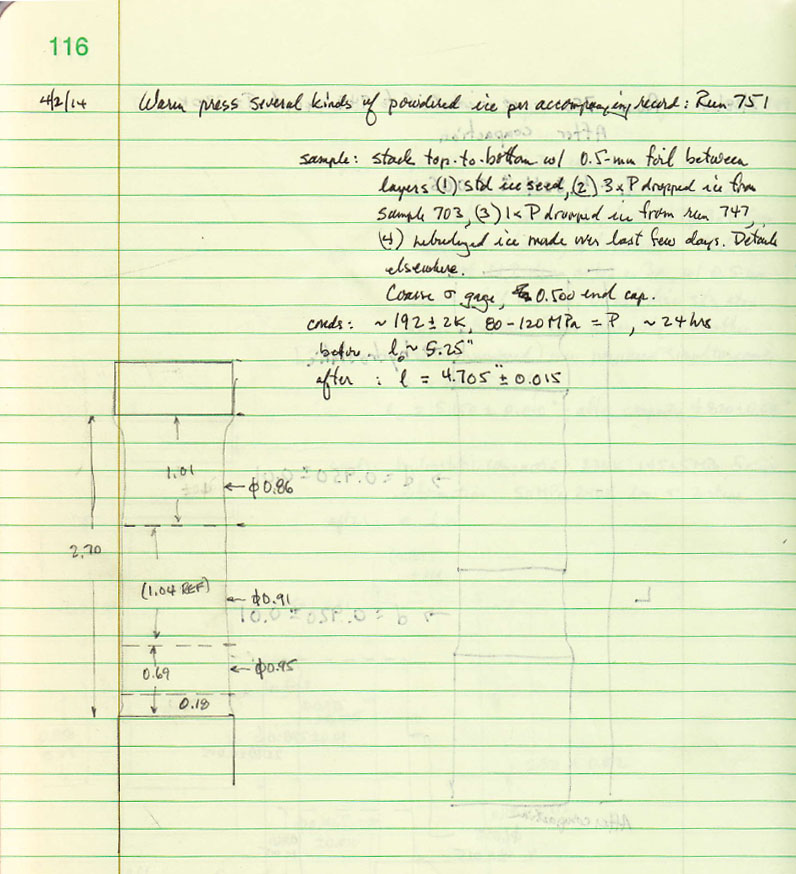 116
4/2/14 Warm press several kinds of powdered ice per accompanying record: Run 751
sample: stack top-to-bottom w/ 0.5-mm foil between
layers (1) std ice seed, (2) 3xP dropped ice from
sample 703, (3) 1xP dropped ice from run 747,
(4) nebulized ice made over last few days. Details
elsewhere.
Coarse σ gage, 0.500 end cap.
conds: ~192 ± 2K, 80-120 MPa = P, ~24 hrs
before. l₀ ~ 5.25"
after : l = 4.705" ± 0.015
1.01
ϕ0.86
2.70
(1.04 REF)
ϕ0.91
0.69
ϕ0.95
0.18